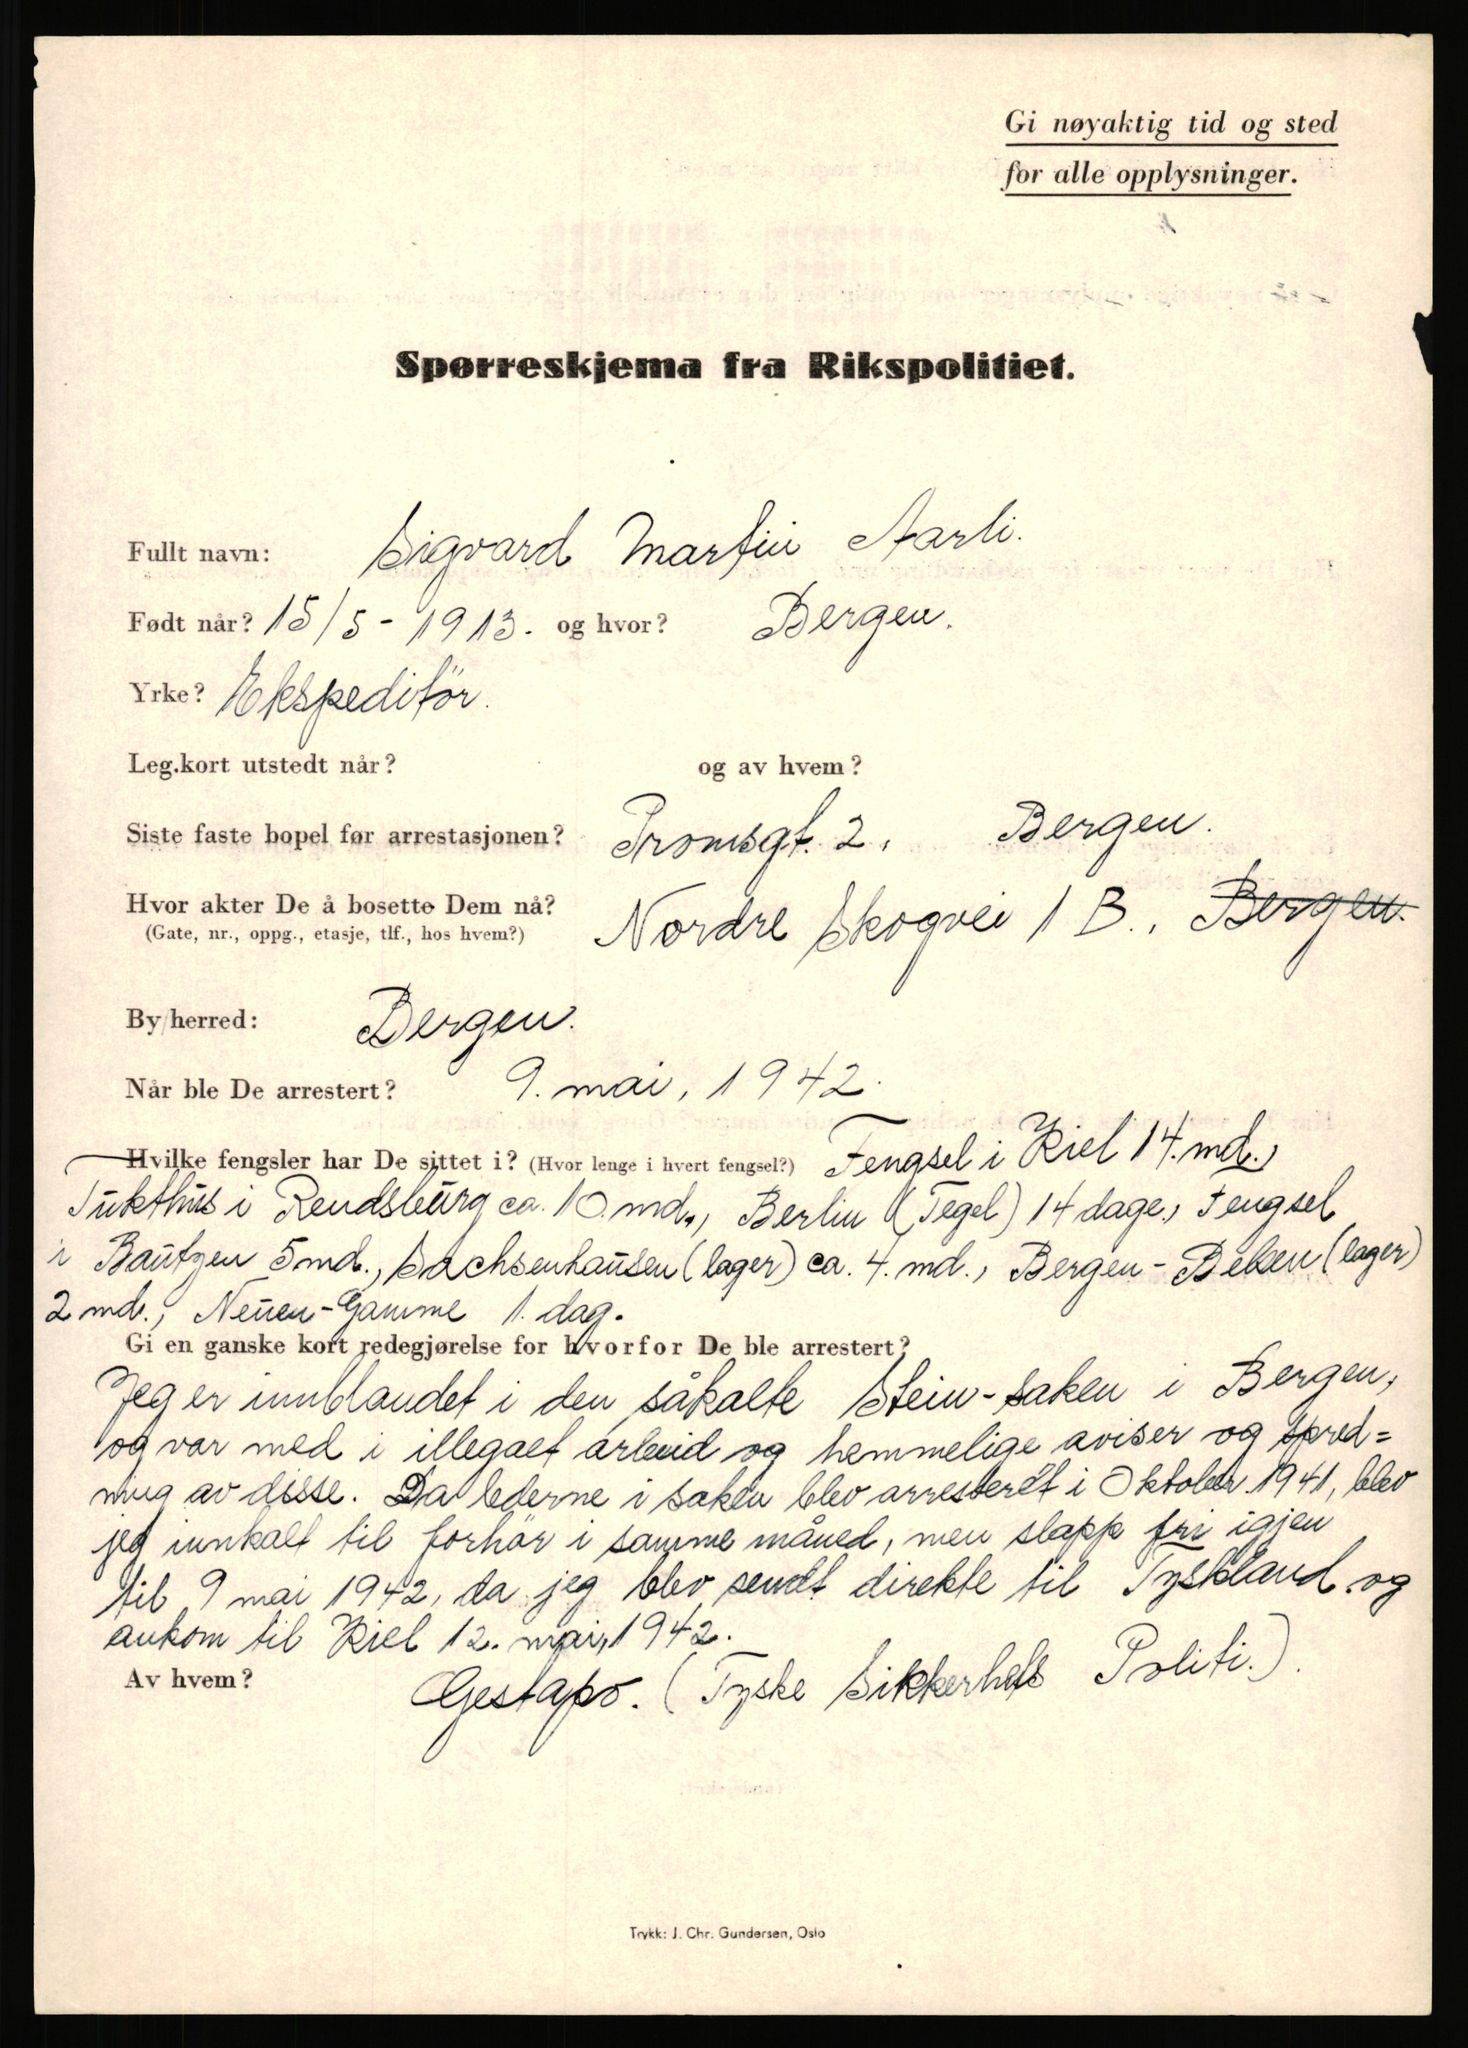 Gi nøyaktig tid og sted
for alle opplysninger.
Spørreskjema fra Rikspolitiet.
Fullt navn: Sigvard Martin Aarli.
Født når? 15/5-1913. og hvor? Bergen.
Yrke? Ekspeditör.
Leg.kort utstedt når? og av hvem?
Siste faste bopel før arrestasjonen? Tromsgt. 2, Bergen.
Hvor akter De å bosette Dem nå? Nordre Skogvei 1 B., Bergen.
(Gate, nr., oppg., etasje, tlf., hos hvem?)
By/herred: Bergen.
Når ble De arrestert? 9. mai, 1942.
Hvilke fengsler har De sittet i? (Hvor lenge i hvert fengsel?) Fengsel i Kiel 14. md.,
Tukthus i Rendsburg ca. 10. md., Berlin (Tegel) 14 dage., Fengsel
i Bautzen 5 md., Sachsenhausen (lager) ca. 4. md., Bergen-Belsen (lager)
2 md., Neuen-Gamme 1. dag.
Gi en ganske kort redegjørelse for hvorfor De ble arrestert?
Jeg er innblandet i den såkalte Stein-saken i Bergen,
og var med i illegaet arbeid og hemmelige aviser og spred=
ning av disse. Da lederne i saken blev arresteret i Oktober 1941, blev
jeg innkalt til forhör i samme måned, men slapp fri igjen
til 9 mai 1942, da jeg blev sendt direkte til Tyskland og
ankom til Kiel 12. mai, 1942.
Av hvem? Gestapo. (Tyske Sikkerhets Politi.).
Trykk: J. Chr. Gundersen, Oslo